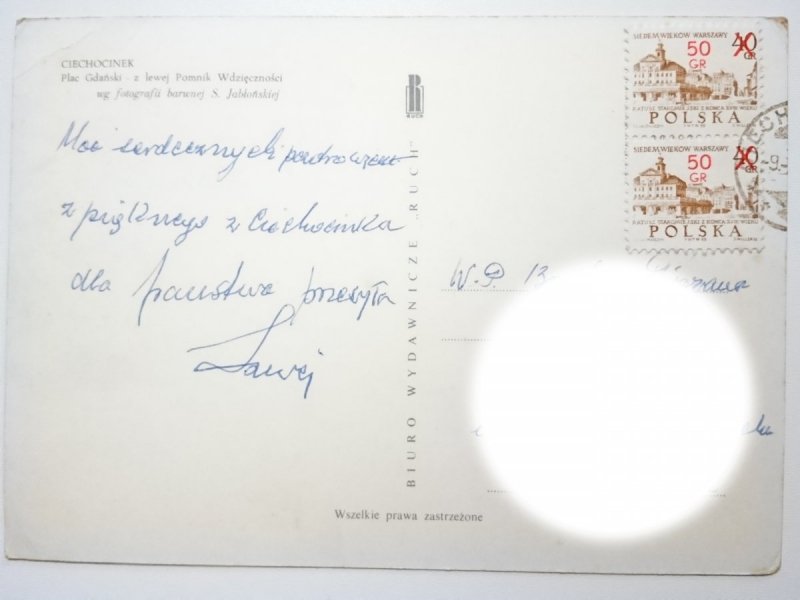 CIECHOCINEK
Plac Gdański - z lewej Pomnik Wdzięczności
wg fotografii barwnej S. Jabłońskiej
RUCH
BIURO WYDAWNICZE „RUCH”
SIEDEM WIEKÓW WARSZAWY
50 GR
40 GR
RATUSZ STAROMIEJSKI Z KOŃCA XVIII WIEKU
POLSKA
SIEDEM WIEKÓW WARSZAWY
50 GR
40 GR
RATUSZ STAROMIEJSKI Z KOŃCA XVIII WIEKU
POLSKA
Moc serdecznych pozdrowień
z pięknego z Ciechocinka
dla państwa przesyła
W.P.
Wszelkie prawa zastrzeżone